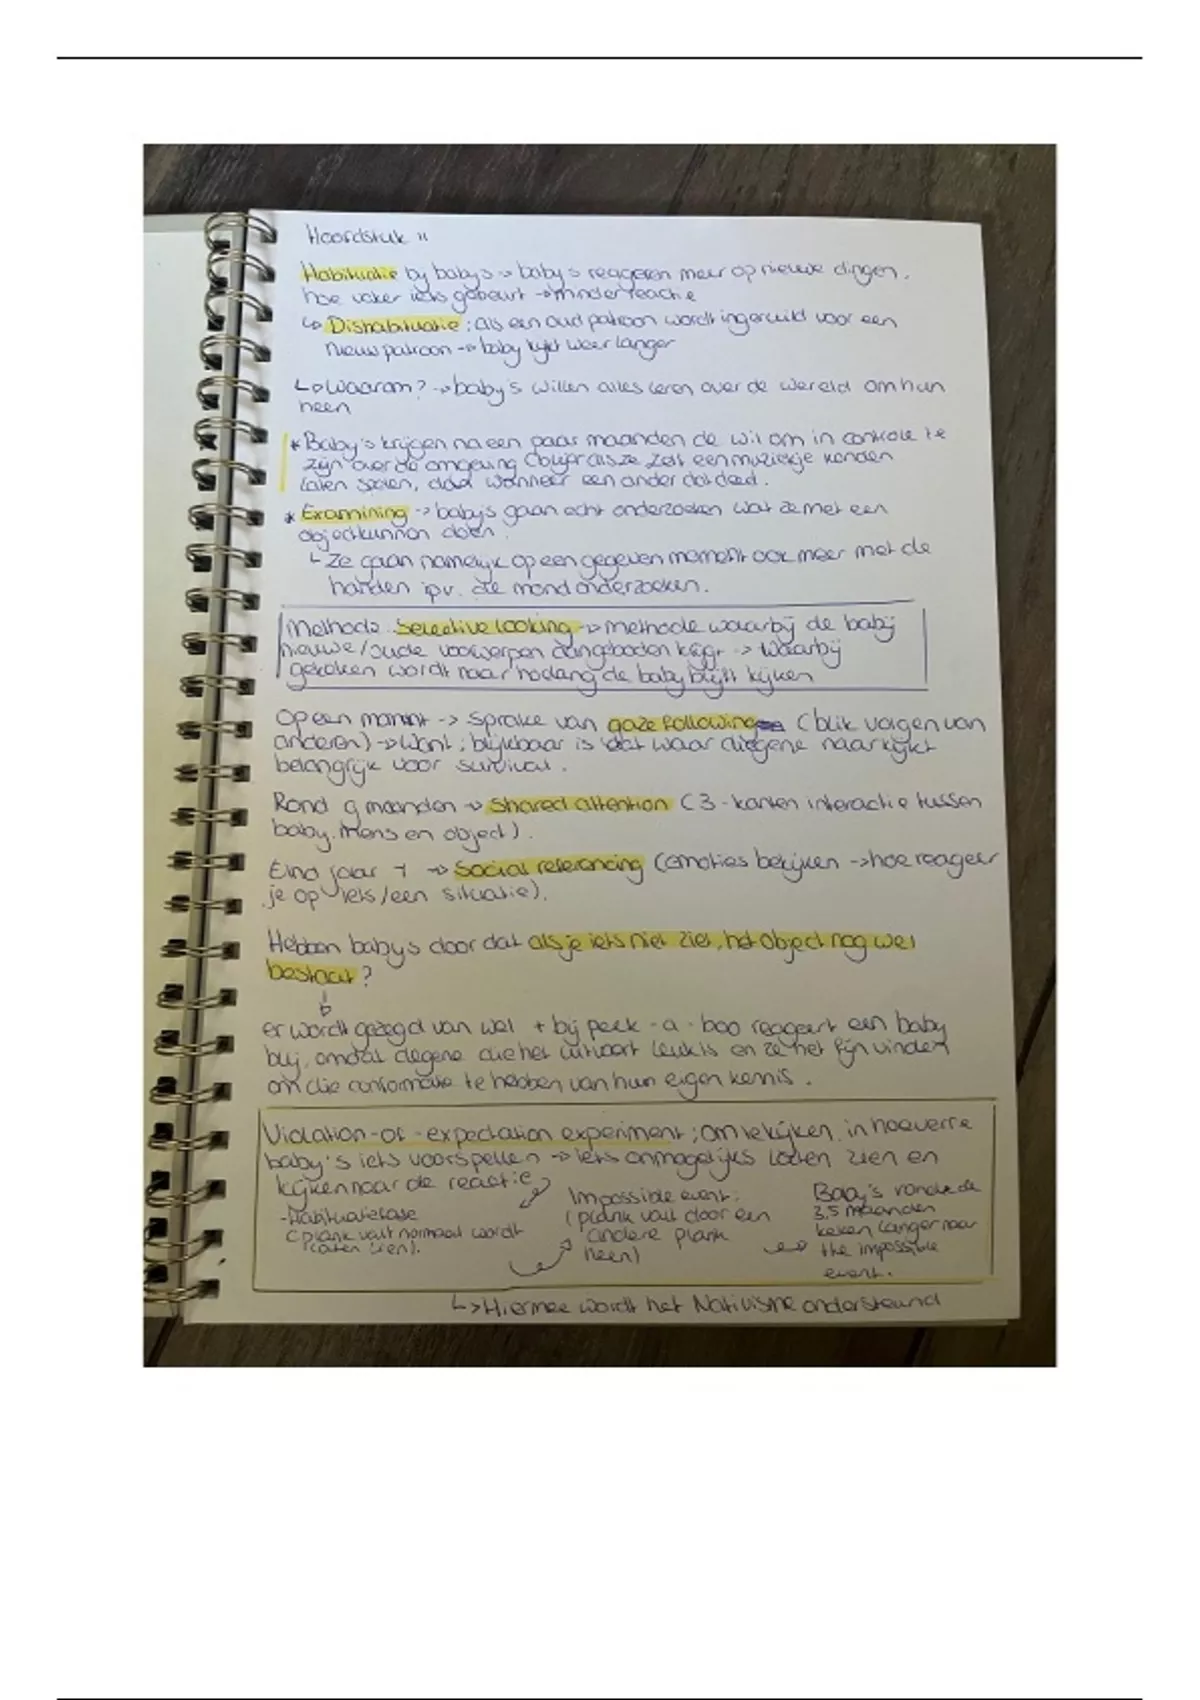 Hoofdstuk 11
Habituatie bij baby's -> baby's reageren meer op nieuwe dingen,
hoe vaker iets gebeurt -> minder reactie
↳ Dishabituatie: als een oud patroon wordt ingeruild voor een
nieuw patroon -> baby kijkt weer langer
↳ Waarom? -> baby's willen alles leren over de wereld om hun
heen
* Baby's krijgen na een paar maanden de wil om in controle te
zijn over de omgeving (blijer als ze zelf een muziekje konden
laten spelen, dan wanneer een ander dat deed.
* Examining -> baby's gaan echt onderzoeken wat ze met een
object kunnen doen.
↳ Ze gaan namelijk op een gegeven moment ook meer met de
handen ipv. de mond onderzoeken.
Methode: Selective looking -> methode waarbij de baby
nieuwe/oude voorwerpen aangeboden krijgt -> waarbij
gekeken wordt naar hoelang de baby blijft kijken
Op een moment -> sprake van gaze following (blik volgen van
anderen) -> Want: blijkbaar is dat waar diegene naar kijkt
belangrijk voor survival.
Rond 9 maanden -> shared attention (3-kanten interactie tussen
baby, mens en object).
Eind jaar 1 -> Social referencing (emoties bekijken -> hoe reageer
je op iets/een situatie).
Hebben baby's door dat als je iets niet ziet, het object nog wel
bestaat?
er wordt gezegd van wel + bij peek-a-boo reageert een baby
blij, omdat degene die het uitvoert leuk is en ze het fijn vinden
om die conformatie te hebben van hun eigen kennis.
Violation-of-expectation experiment: om te kijken in hoeverre
baby's iets voorspellen -> iets onmogelijks laten zien en
kijken naar de reactie
-Habituatiefase
(plank valt normaal wordt
laten zien).
Impossible event:
(plank valt door een
andere plank
heen)
Baby's rond de
3,5 maanden
keken langer naar
the impossible
event.
↳ Hiermee wordt het Nativisme ondersteund